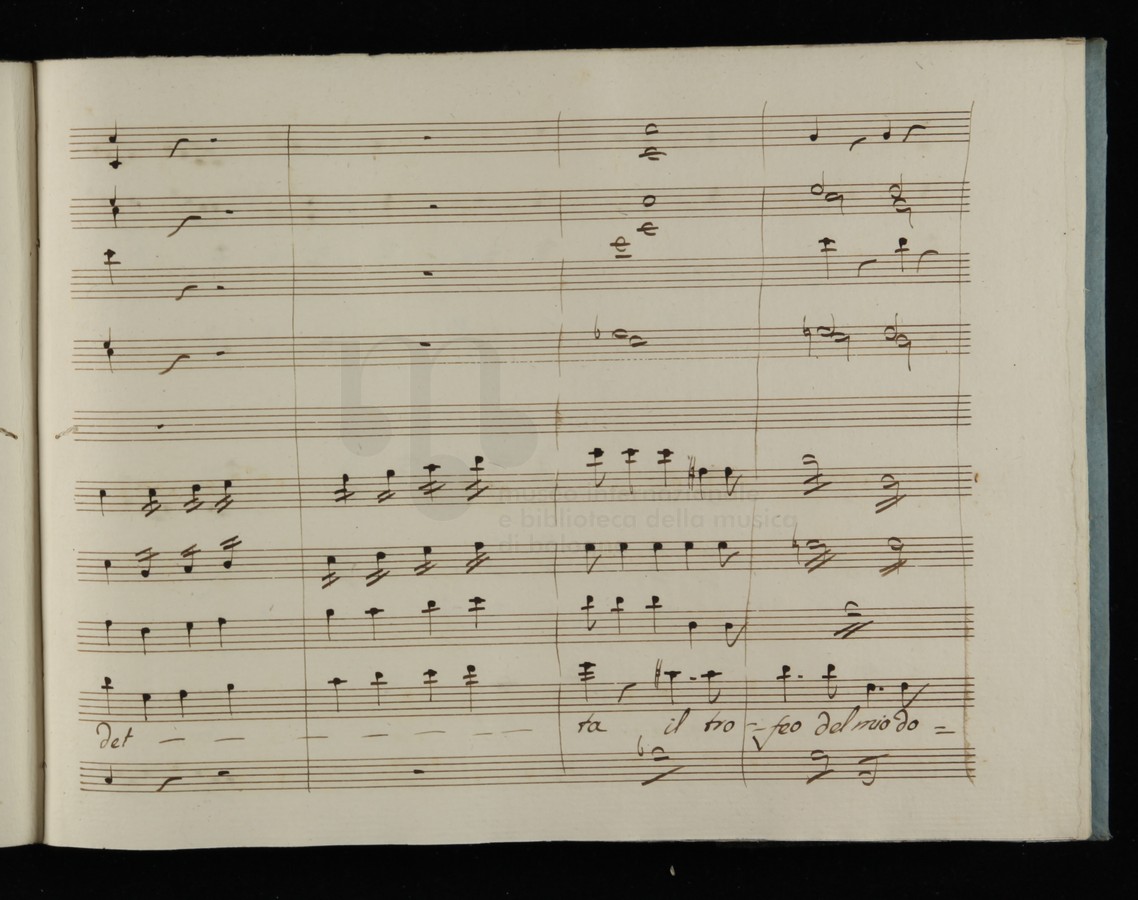 museo internazionale
e biblioteca della musica
di bologna
det _ _ _ _ _ _ _ _ ta il tro = feo del mio do =